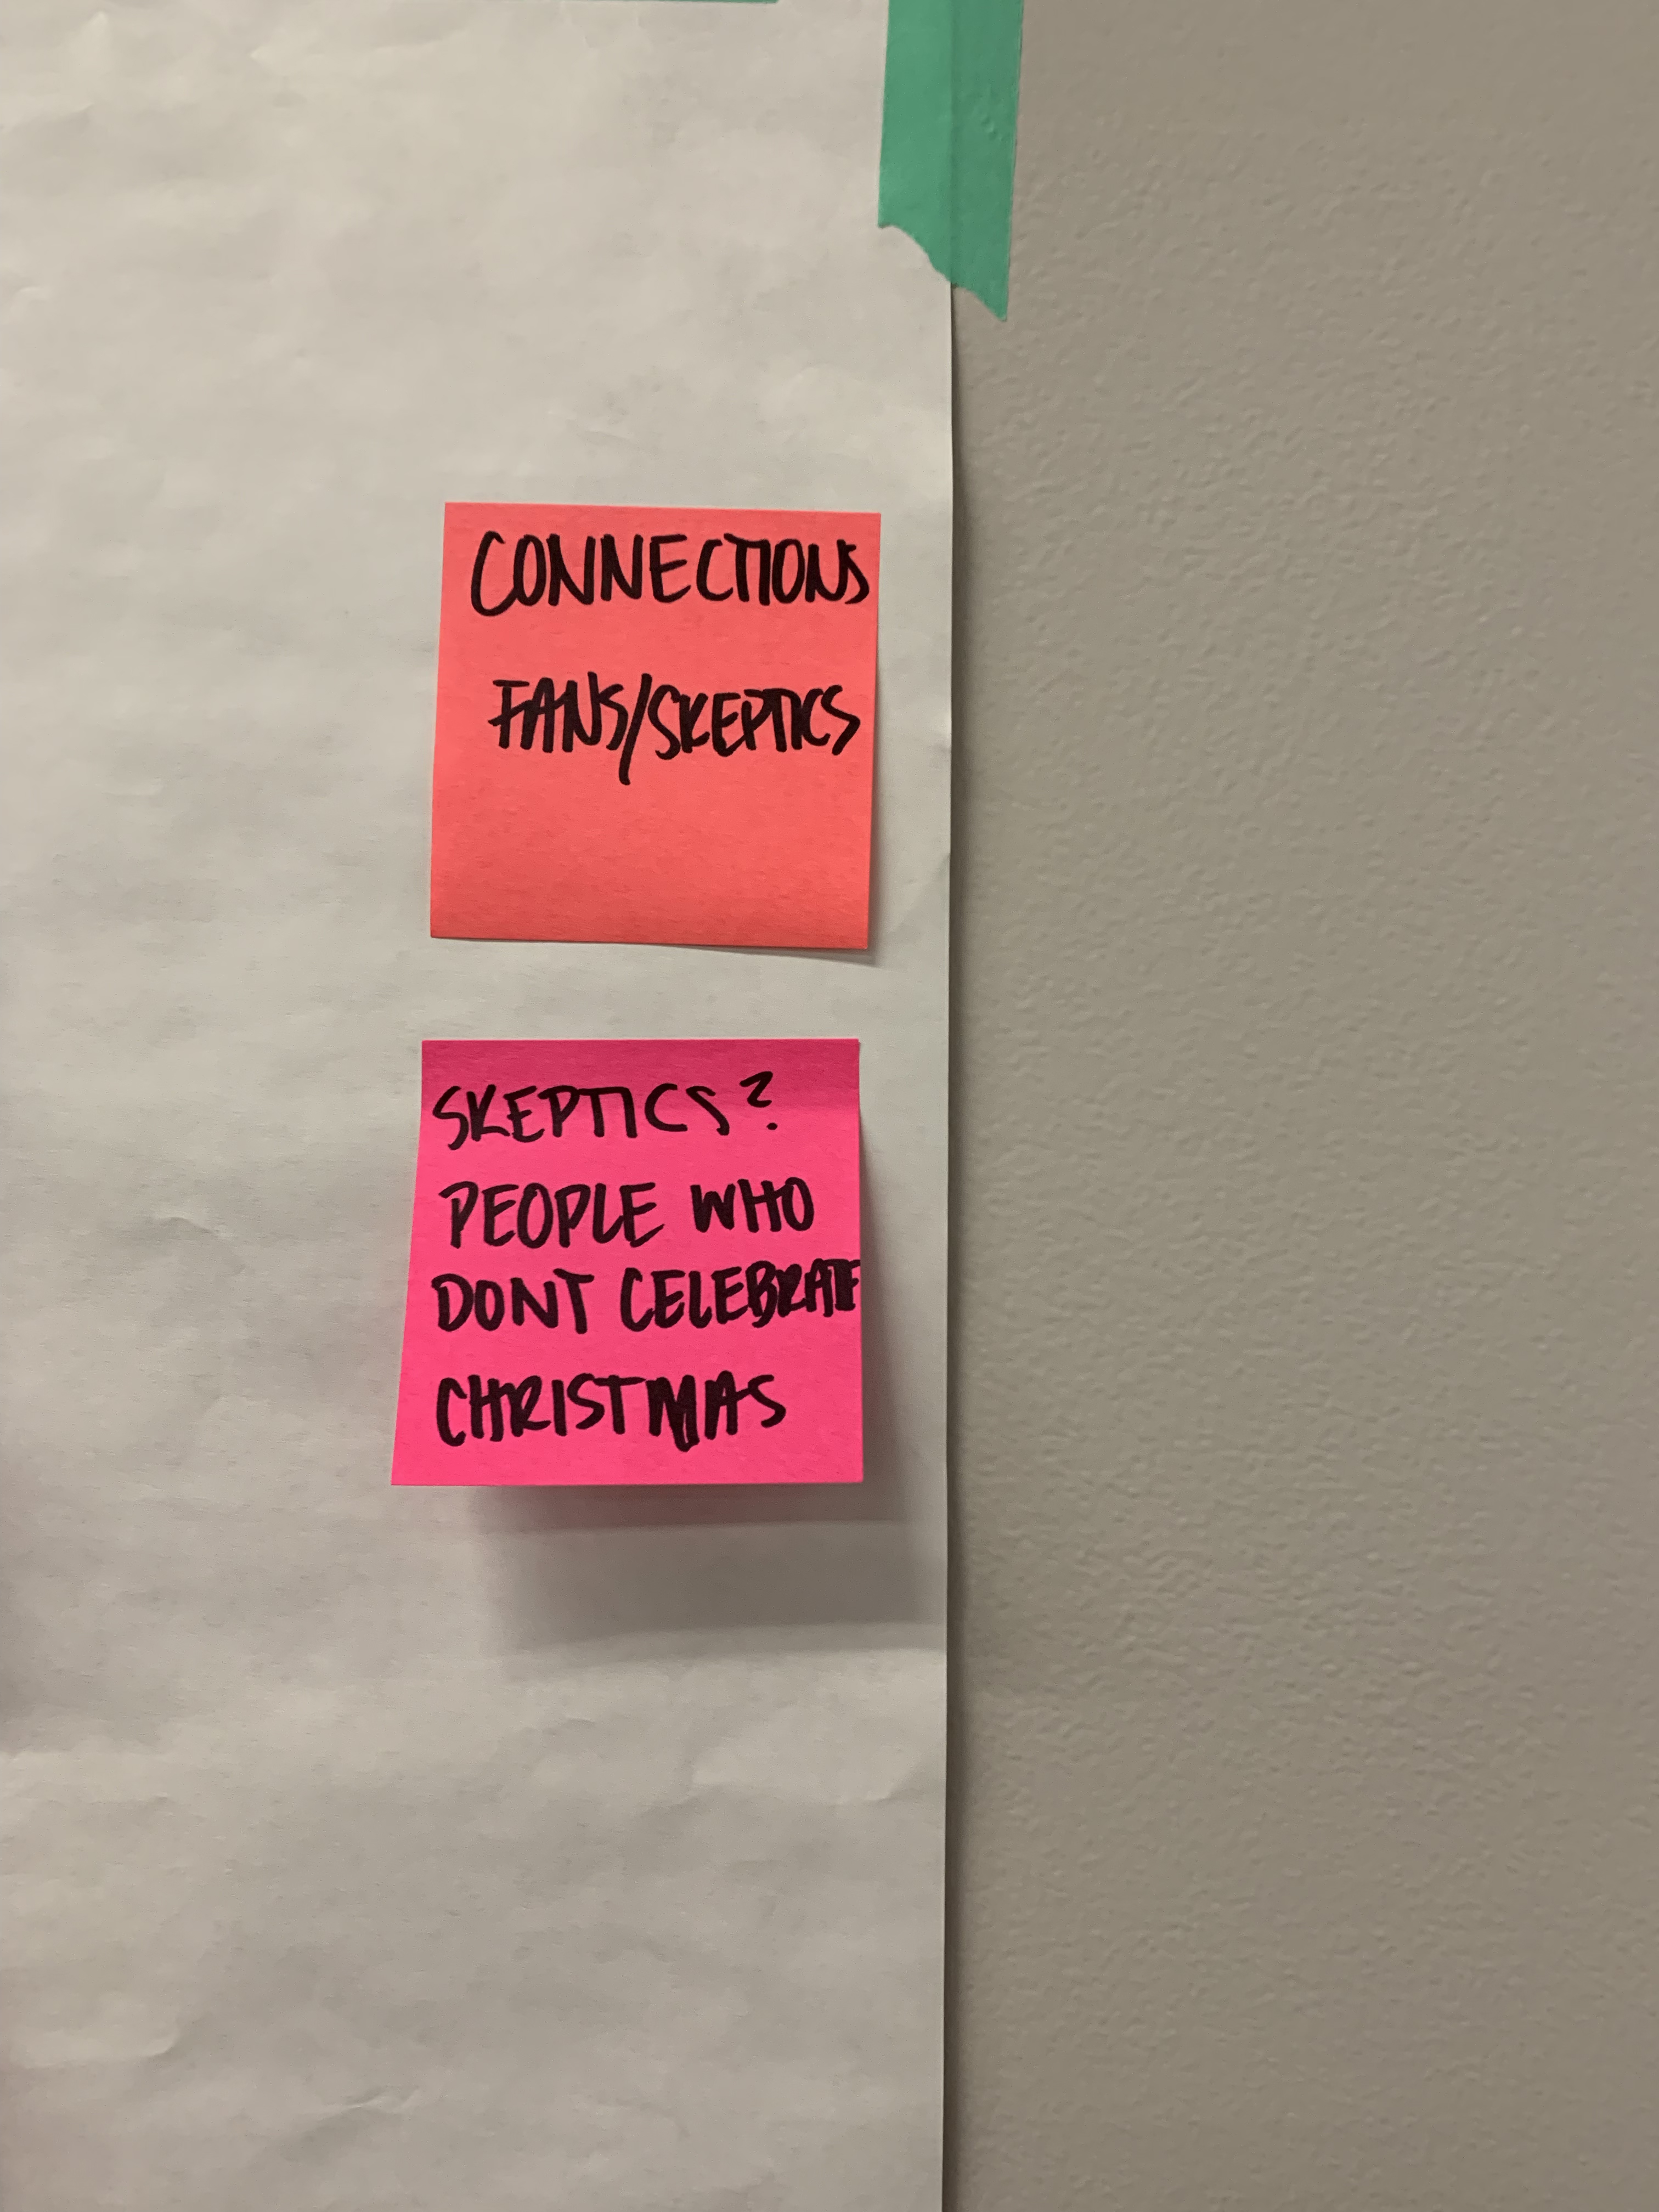 CONNECTIONS
FANS/SKEPTICS
SKEPTICS?
PEOPLE WHO
DONT CELEBRATE
CHRISTMAS